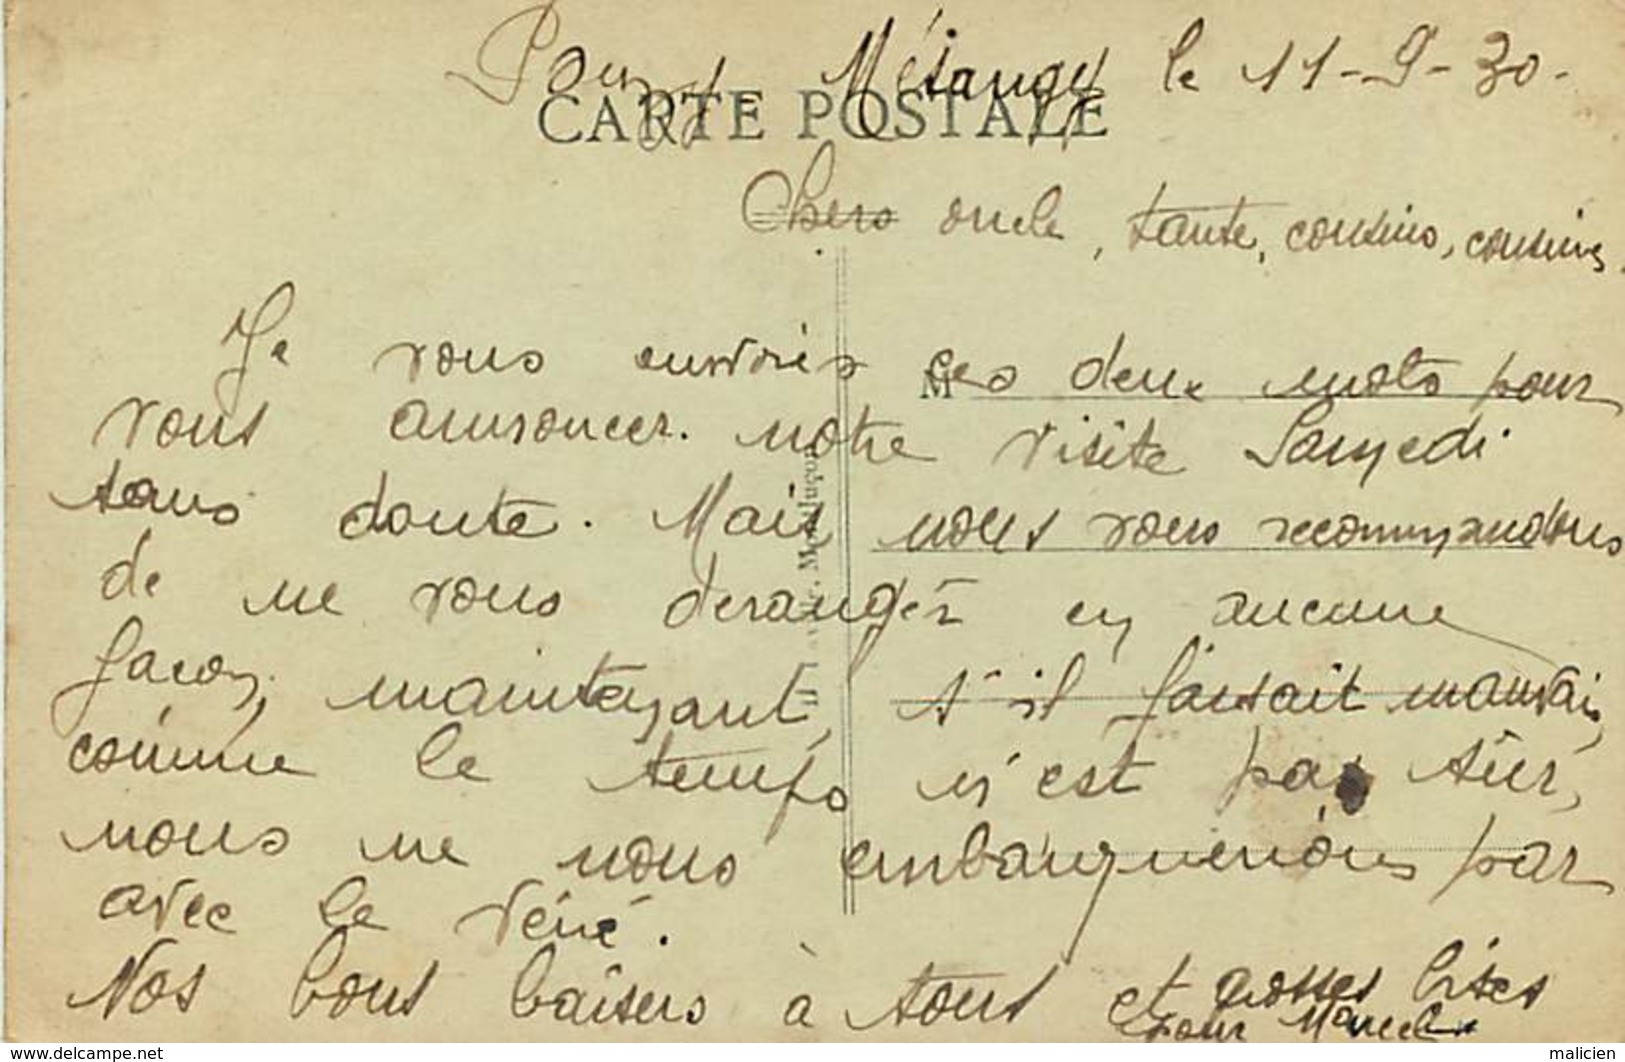 Pouzy-Mésangy le 11-9-30-
CARTE POSTALE
Chers oncle, tante, cousins, cousines.
Je vous envoies ces deux mots pour
M
vous announcer. notre visite Samedi
sans doute. Mais nous vous recommandons
de ne vous deranger en aucune
façon, maintenant, s'il faisait mauvais,
comme le temps n'est pas sûr,
nous ne nous embarquerions par
avec le véné.
Nos bons baisers à tous et grosses bises
pour Marcel
www.delcampe.net
malicien